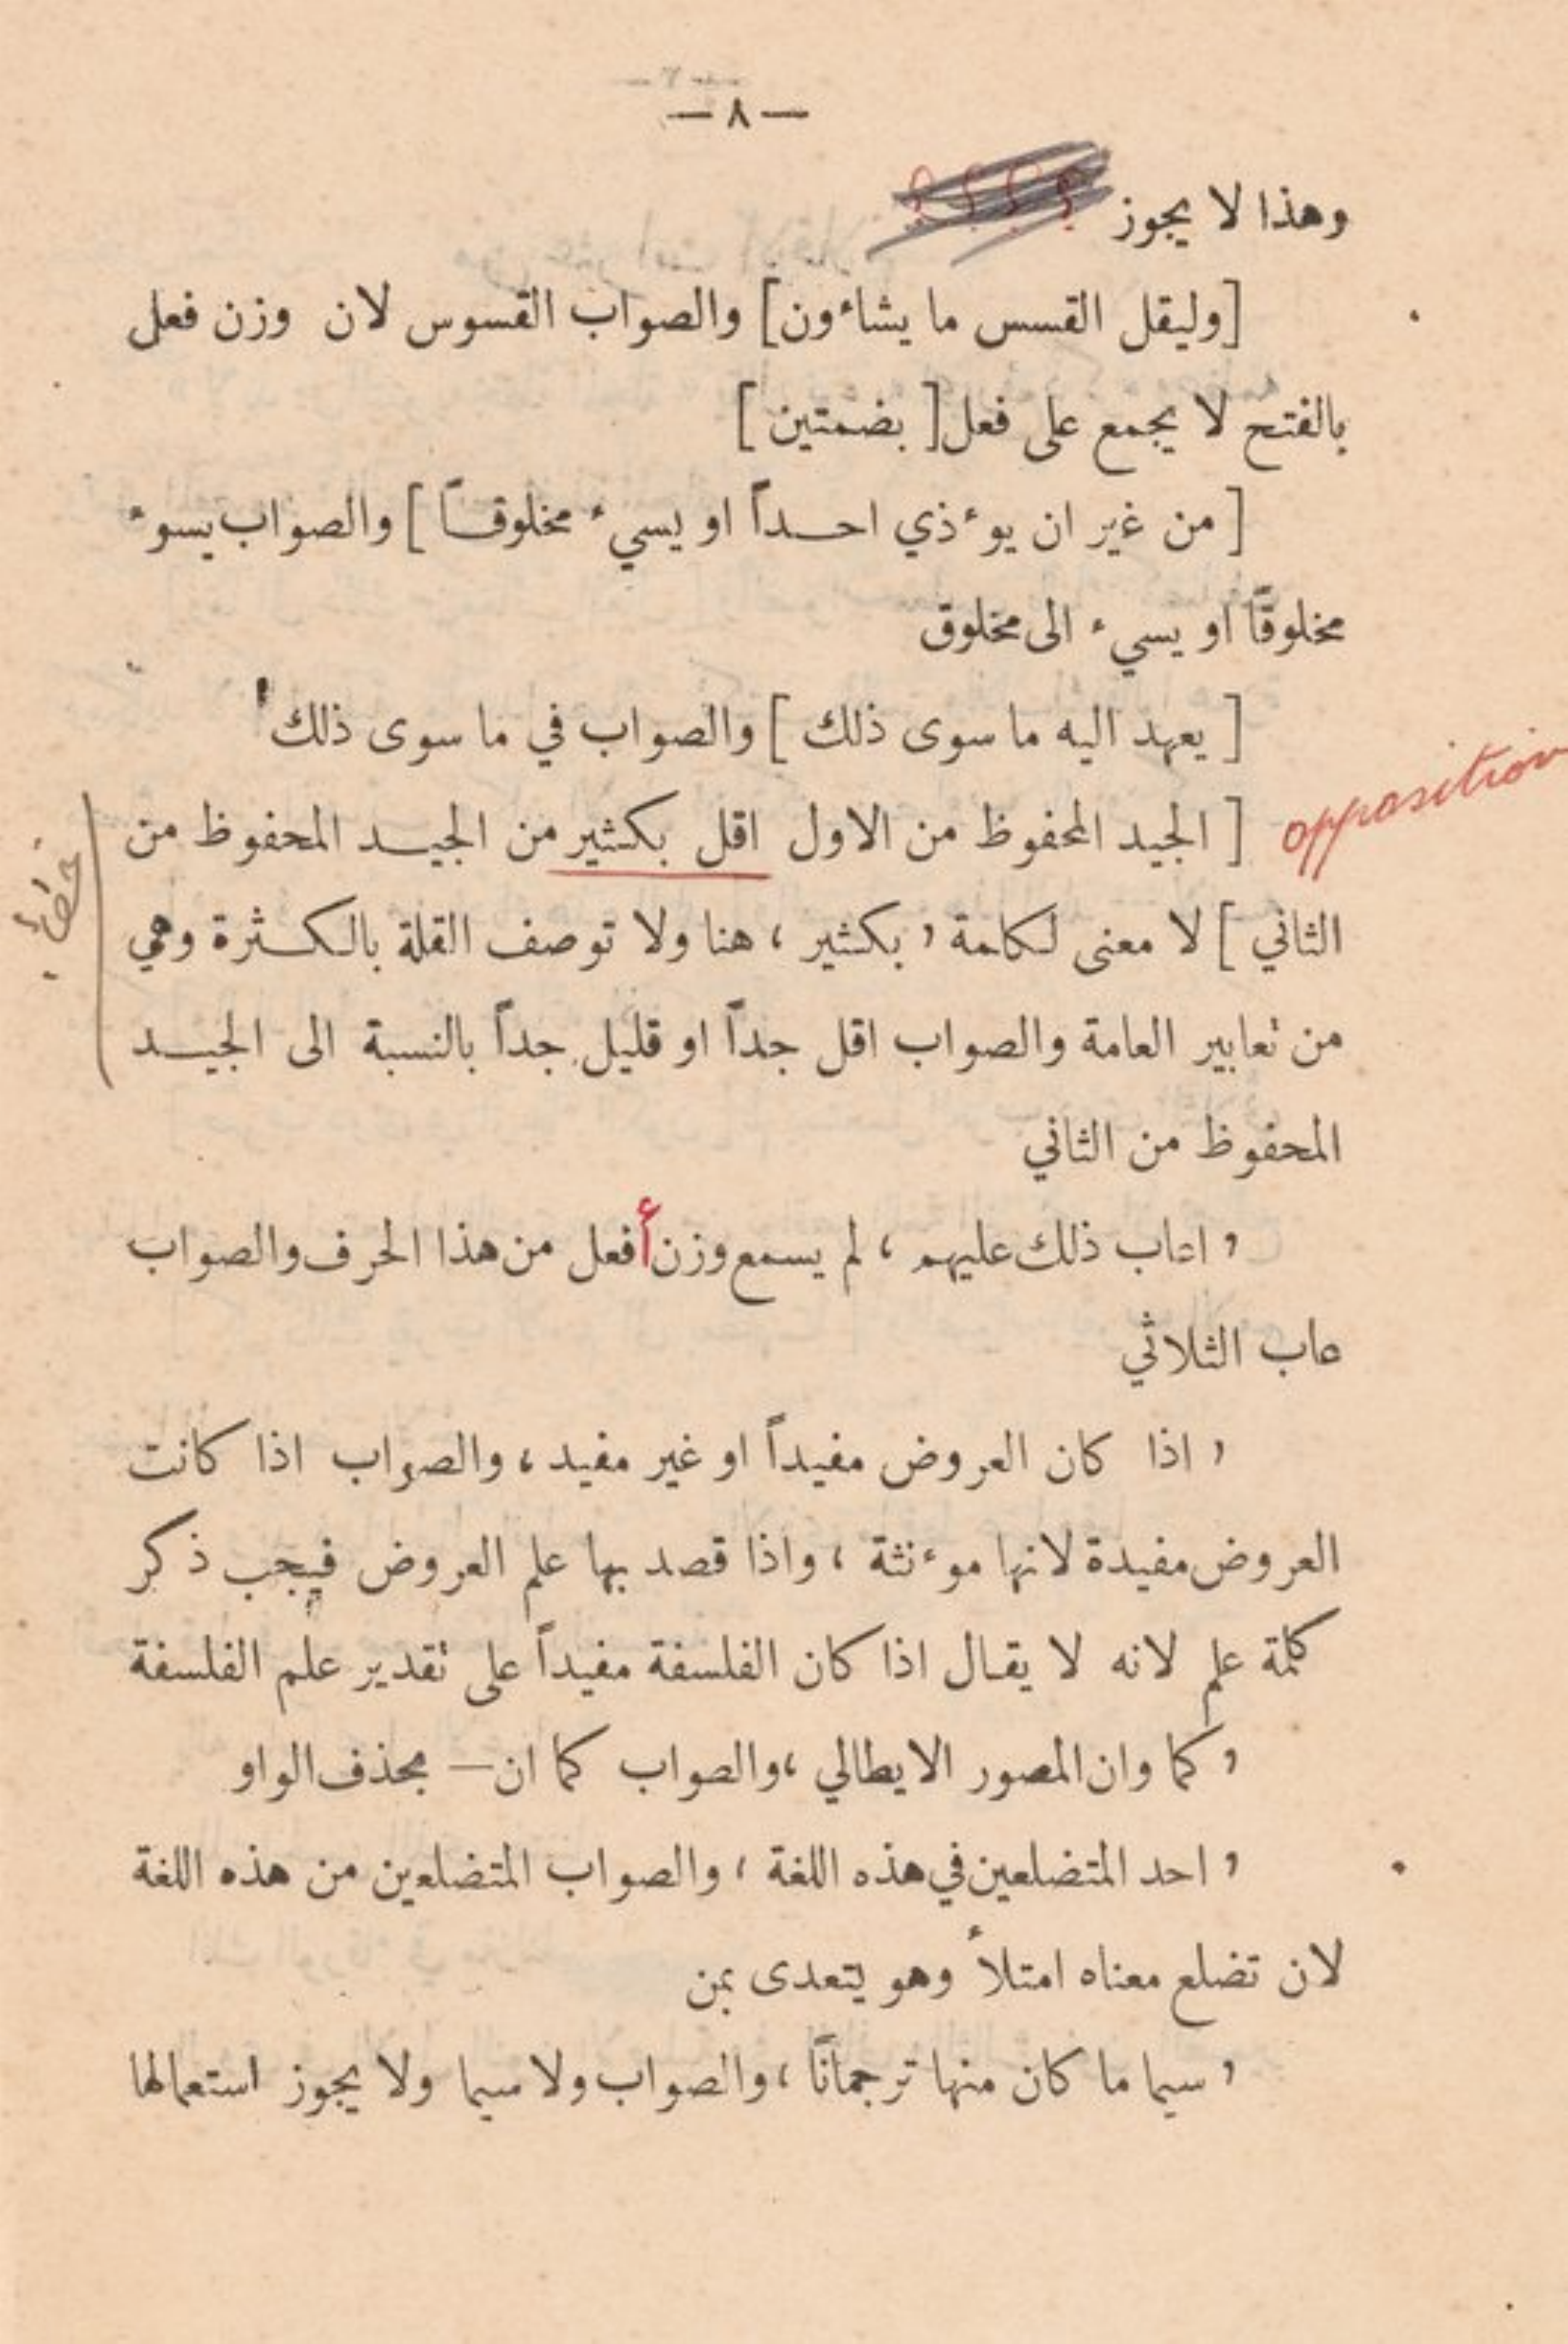 — ٨ —
وهذا لا يجوز ؟ ؟ ؟ ؟
[وليقل القسس ما يشاءون] والصواب القسوس لان وزن فعل
بالفتح لا يجمع على فعل [ بضمتين ]
[ من غير ان يوءذي احداً او يسيء مخلوقاً ] والصواب يسوء
مخلوقًا او يسيء الى مخلوق
[ يعهد اليه ما سوى ذلك ] والصواب في ما سوى ذلك
opposition
[ الجيد المحفوظ من الاول اقل بكثير من الجيد المحفوظ من
الثاني ] لا معنى لكلمة « بكثير » هنا ولا توصف القلة بالكثرة وهي
من تعابير العامة والصواب اقل جداً او قليل جداً بالنسبة الى الجيد
المحفوظ من الثاني
« اعاب ذلك عليهم » لم يسمع وزن أفعل من هذا الحرف والصواب
عاب الثلاثي
« اذا كان العروض مفيداً او غير مفيد » والصواب اذا كانت
العروض مفيدة لانها موءنثة ، واذا قصد بها علم العروض فيجب ذكر
كلمة علم لانه لا يقال اذا كان الفلسفة مفيداً على تقدير علم الفلسفة
« كما وان المصور الايطالي » والصواب كما ان — بحذف الواو
« احد المتضلعين في هذه اللغة » والصواب المتضلعين من هذه اللغة
لان تضلع معناه امتلأ وهو يتعدى بمن
« سيما ما كان منها ترجمانًا » والصواب ولا سيما ولا يجوز استعمالها